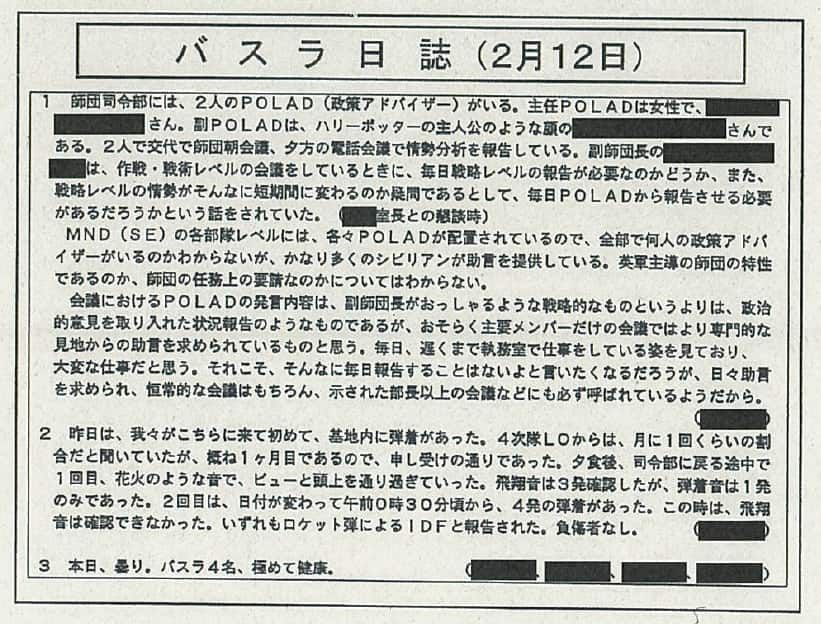 バスラ日誌(2月12日)
1 師団司令部には、2人のPOLAD(政策アドバイザー)がいる。主任POLADは女性で、
さん。副POLADは、ハリーポッターの主人公のような頭の さんで
ある。2人で交代で師団朝会議、夕方の電話会議で情勢分析を報告している。副師団長の
は、作戦・戦術レベルの会議をしているときに、毎日戦略レベルの報告が必要なのかどうか、また、
戦略レベルの情勢がそんなに短期間に変わるのか疑問であるとして、毎日POLADから報告させる必要
があるだろうかという話をされていた。( 室長との懇談時)
MND(SE)の各部隊レベルには、各々POLADが配置されているので、全部で何人の政策アドバ
イザーがいるのかわからないが、かなり多くのシビリアンが助言を提供している。英軍主導の師団の特性
であるのか、師団の任務上の要請なのかについてはわからない。
会議におけるPOLADの発言内容は、副師団長がおっしゃるような戦略的なものというよりは、政治
的意見を取り入れた状況報告のようなものであるが、おそらく主要メンバーだけの会議ではより専門的な
見地からの助言を求められているものと思う。毎日、遅くまで執務室で仕事をしている姿を見ており、
大変な仕事だと思う。それこそ、そんなに毎日報告することはないよと言いたくなるだろうが、日々助言
を求められ、恒常的な会議はもちろん、示された部長以上の会議などにも必ず呼ばれているようだから。
( )
2 昨日は、我々がこちらに来て初めて、基地内に弾着があった。4次隊LOからは、月に1回くらいの割
合だと聞いていたが、概ね1ヶ月目であるので、申し受けの通りであった。夕食後、司令部に戻る途中で
1回目、花火のような音で、ビューと頭上を通り過ぎていった。飛翔音は3発確認したが、弾着音は1発
のみであった。2回目は、日付が変わって午前0時30分頃から、4発の弾着があった。この時は、飛翔
音は確認できなかった。いずれもロケット弾によるIDFと報告された。負傷者なし。 ( )
3 本日、曇り。バスラ4名、極めて健康。 ( 、 、 、 )